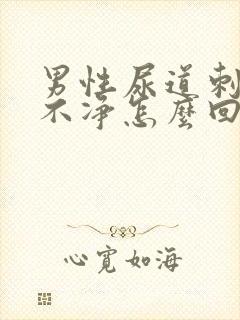 男性尿道刺
不净怎麼回
心寬如海